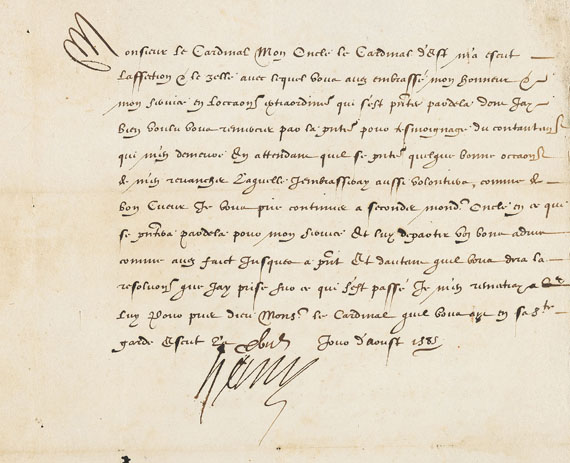 Monsieur le Cardinal Mon Oncle le Cardinal d'Est m'a escrit
Laffection & le zelle avec lequel vous avez embrassé mon honneur &
mon service en Loccasion extraordine qui s'est pnte pardela dont Jay
bien voulu vous remercier par la pnte pour tesmoignage du contantemt
qui m'en demeure En attendant quil se pnte quelque bonne occasion
de m'en revancher Laquelle Jembrasseray aussi volontiers, comme de
bon Cueur Je vous prie continuer a seconder mond. Oncle en ce qui
se pntera pardela pour mon service Et luy departir voz bons advis
comme avez faict Jusques a pnt Et dautant quil vous dira la
resolution que Jay prise sur ce qui s'est passé Je m'en remettray a
luy Pour prier dieu Monsr. le Cardinal quil vous aye en sa ste
garde Escrit Le jour d'Aoust 1581
Henry